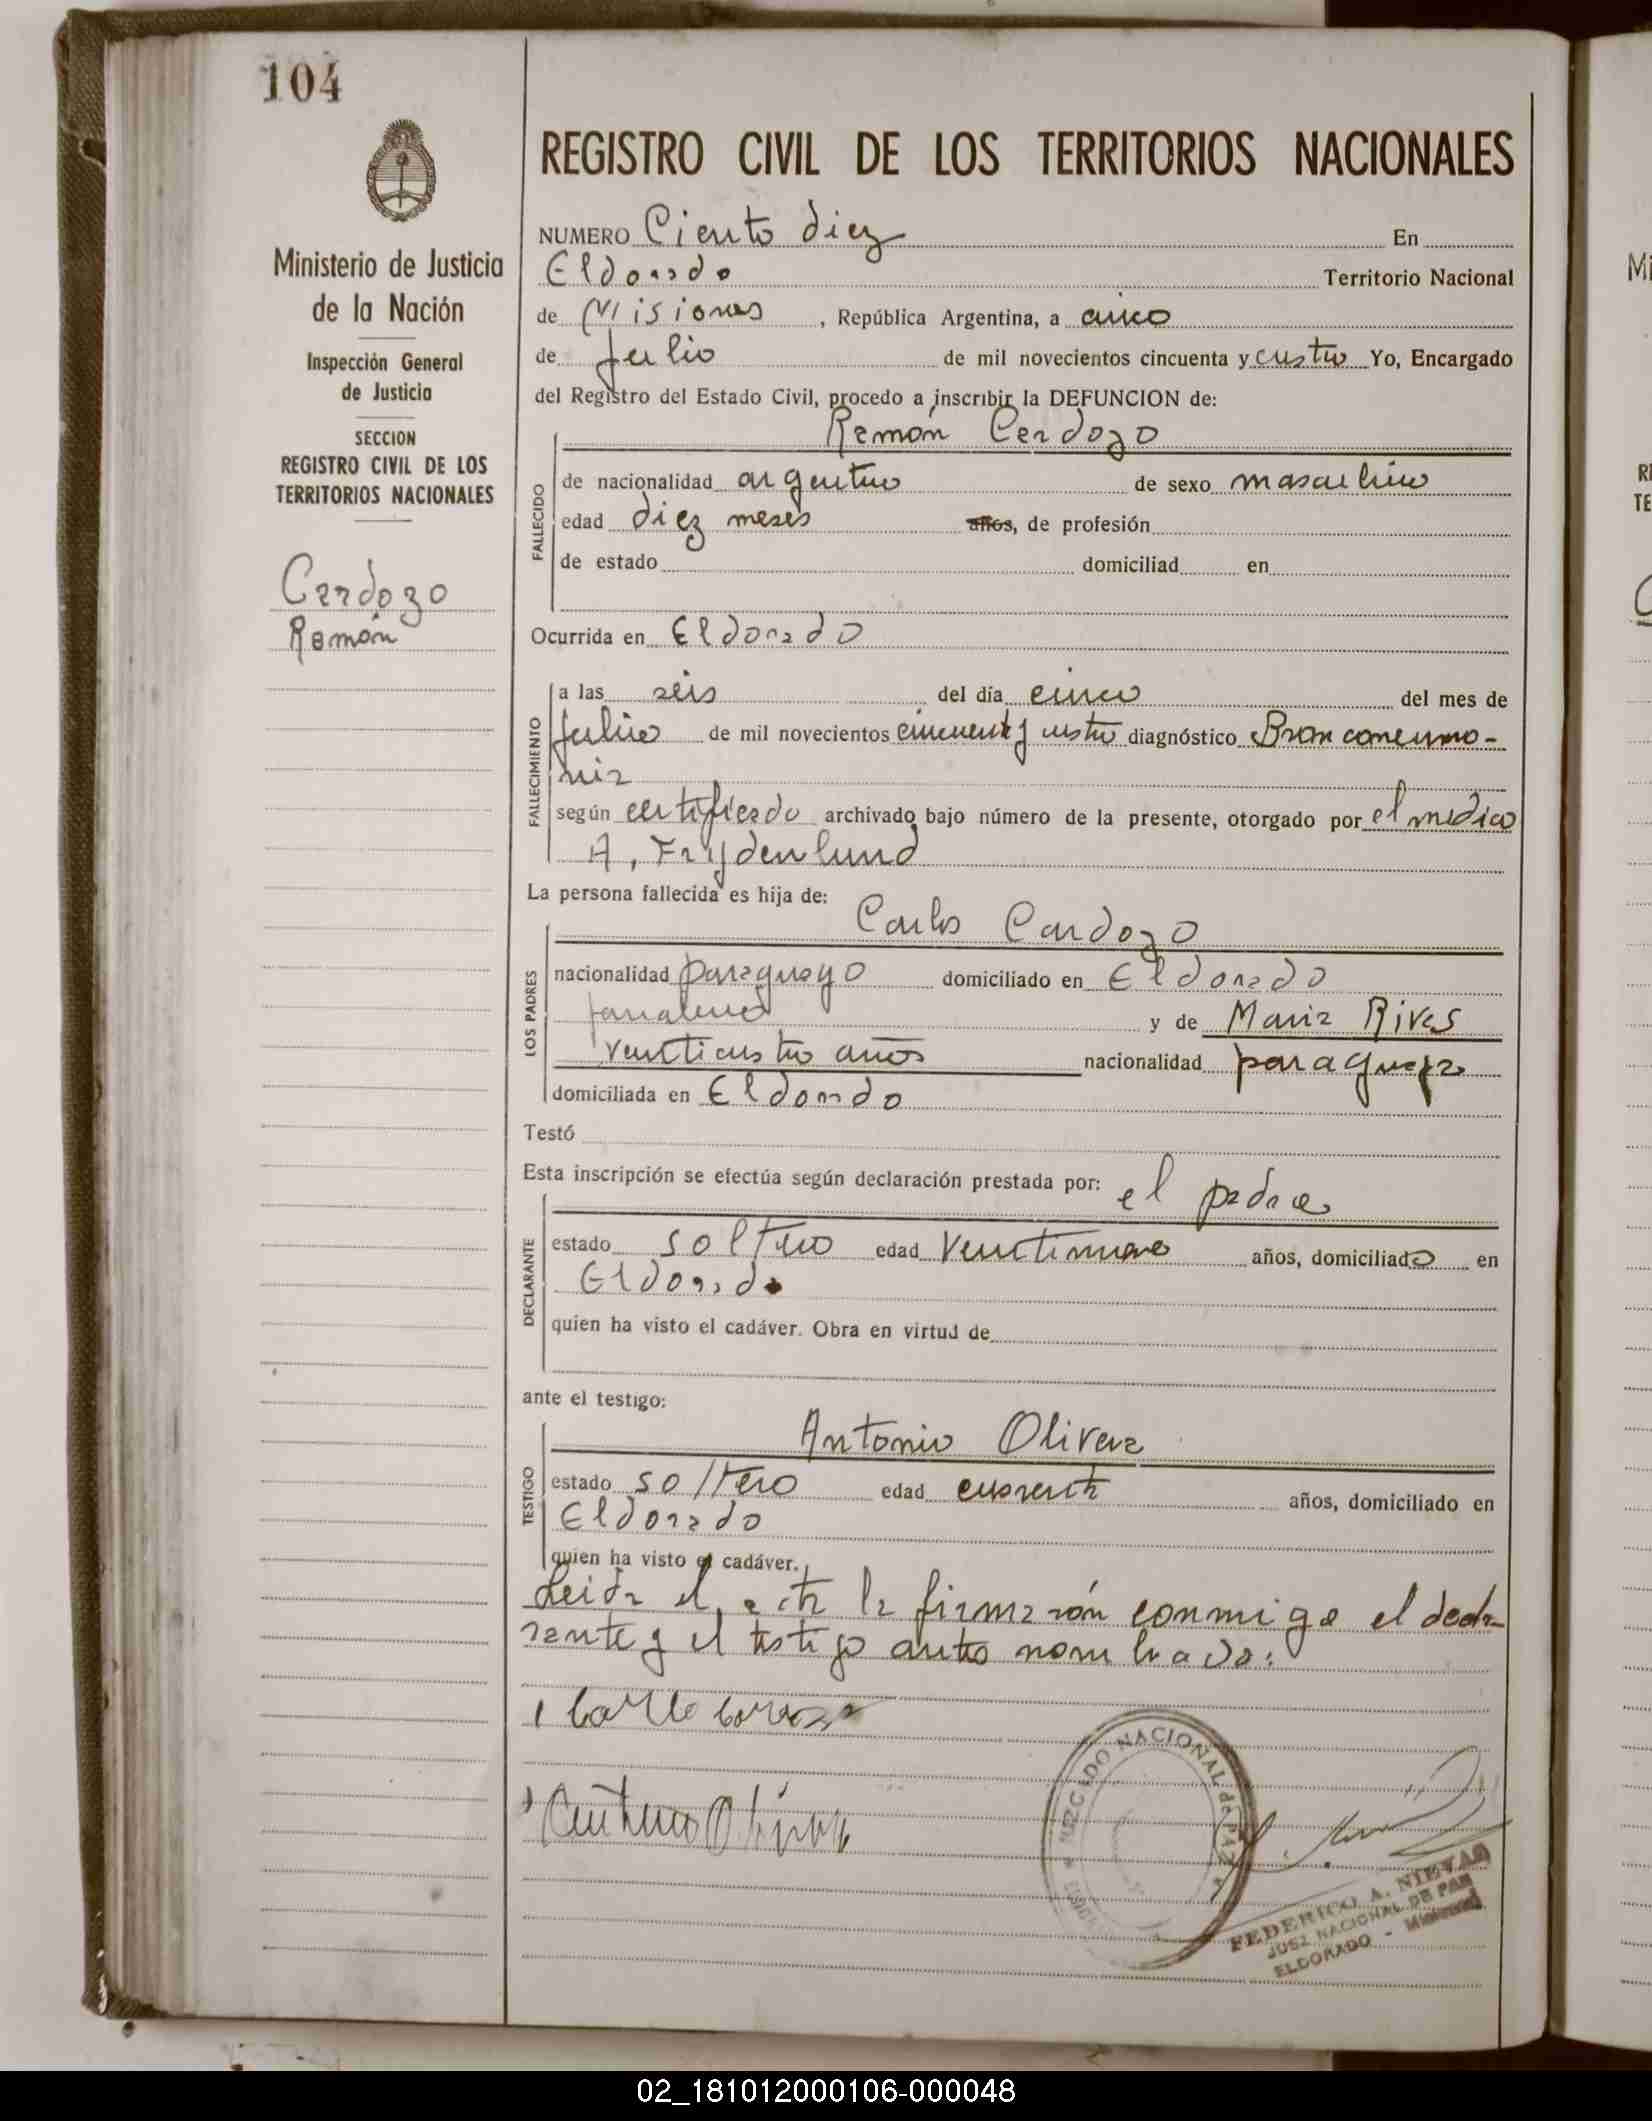 104
REGISTRO CIVIL DE LOS TERRITORIOS NACIONALES
Ministerio de Justicia
de la Nación
Inspección General
de Justicia
SECCION
REGISTRO CIVIL DE LOS
TERRITORIOS NACIONALES
Cardozo
Ramón
NUMERO Ciento diez En
Eldorado Territorio Nacional
de Misiones, República Argentina, a cinco
de Julio de mil novecientos cincuenta y cuatro Yo, Encargado
del Registro del Estado Civil, procedo a inscribir la DEFUNCION de:
Ramón Cardozo
FALLECIDO
de nacionalidad argentino de sexo masculino
edad diez meses años, de profesión
de estado domiciliad en
Ocurrida en Eldorado
FALLECIMIENTO
a las seis del día cinco del mes de
Julio de mil novecientos cincuenta y cuatro diagnóstico Bronconeumo-
nia
según certificado archivado bajo número de la presente, otorgado por el medico
A. Frydenlund
La persona fallecida es hija de:
LOS PADRES
Carlos Cardozo
nacionalidad paraguayo domiciliado en Eldorado
jornalero y de Maria Rivas
veinticuatro años nacionalidad paraguaya
domiciliada en Eldorado
Testó
Esta inscripción se efectúa según declaración prestada por: el padre
DECLARANTE
estado soltero edad veintinueve años, domiciliado en
Eldorado
quien ha visto el cadáver. Obra en virtud de
ante el testigo:
Antonio Olivera
TESTIGO
estado soltero edad cuarenta años, domiciliado en
Eldorado
quien ha visto el cadáver.
Leida el acta la firmarón conmigo el decla-
rante y el testigo antes nombrado:
JUZGADO NACIONAL de PAZ
FEDERICO A. NIEVAS
JUEZ NACIONAL DE PAZ
ELDORADO - Misiones
02_181012000106-000048